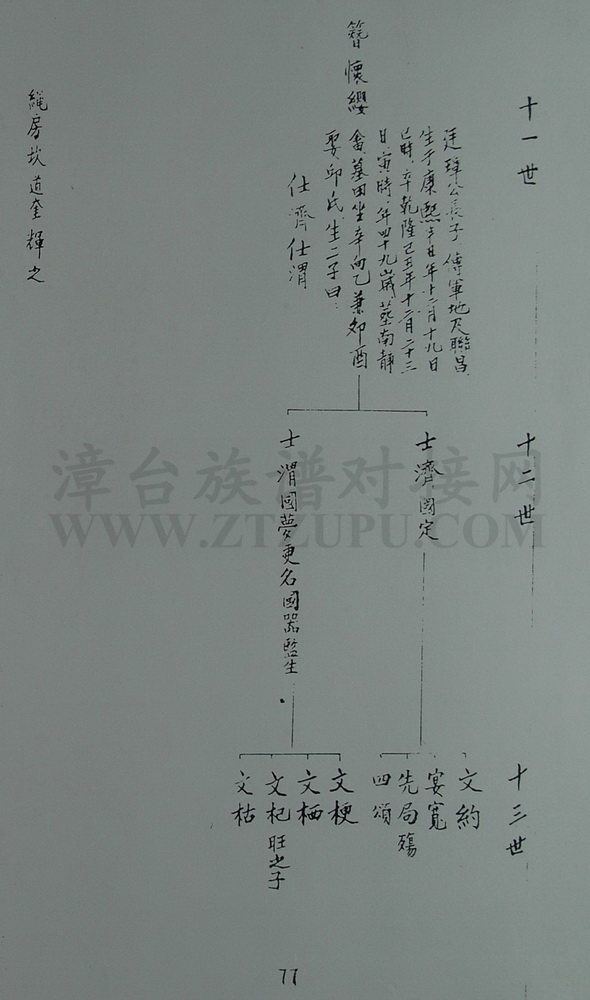 十一世
簪懷纓
廷璋公長子傳軍地尺聯昌
生于康熙辛丑年十二月十九日
巳時卒乾隆己丑年十二月二十三
日寅時年四十九歲葬南靜
畲墓田坐辛向乙兼卯酉
娶邱氏生二子曰
仕濟仕渭
十二世
士濟國定
士渭國夢更名國器監生
十三世
文約
宴寬
先局殤
四頌
文梗
文栖
文杞旺之子
文枯
繩房坎道奎輝之
77
漳台族谱对接网
WWW.ZTZUPU.COM